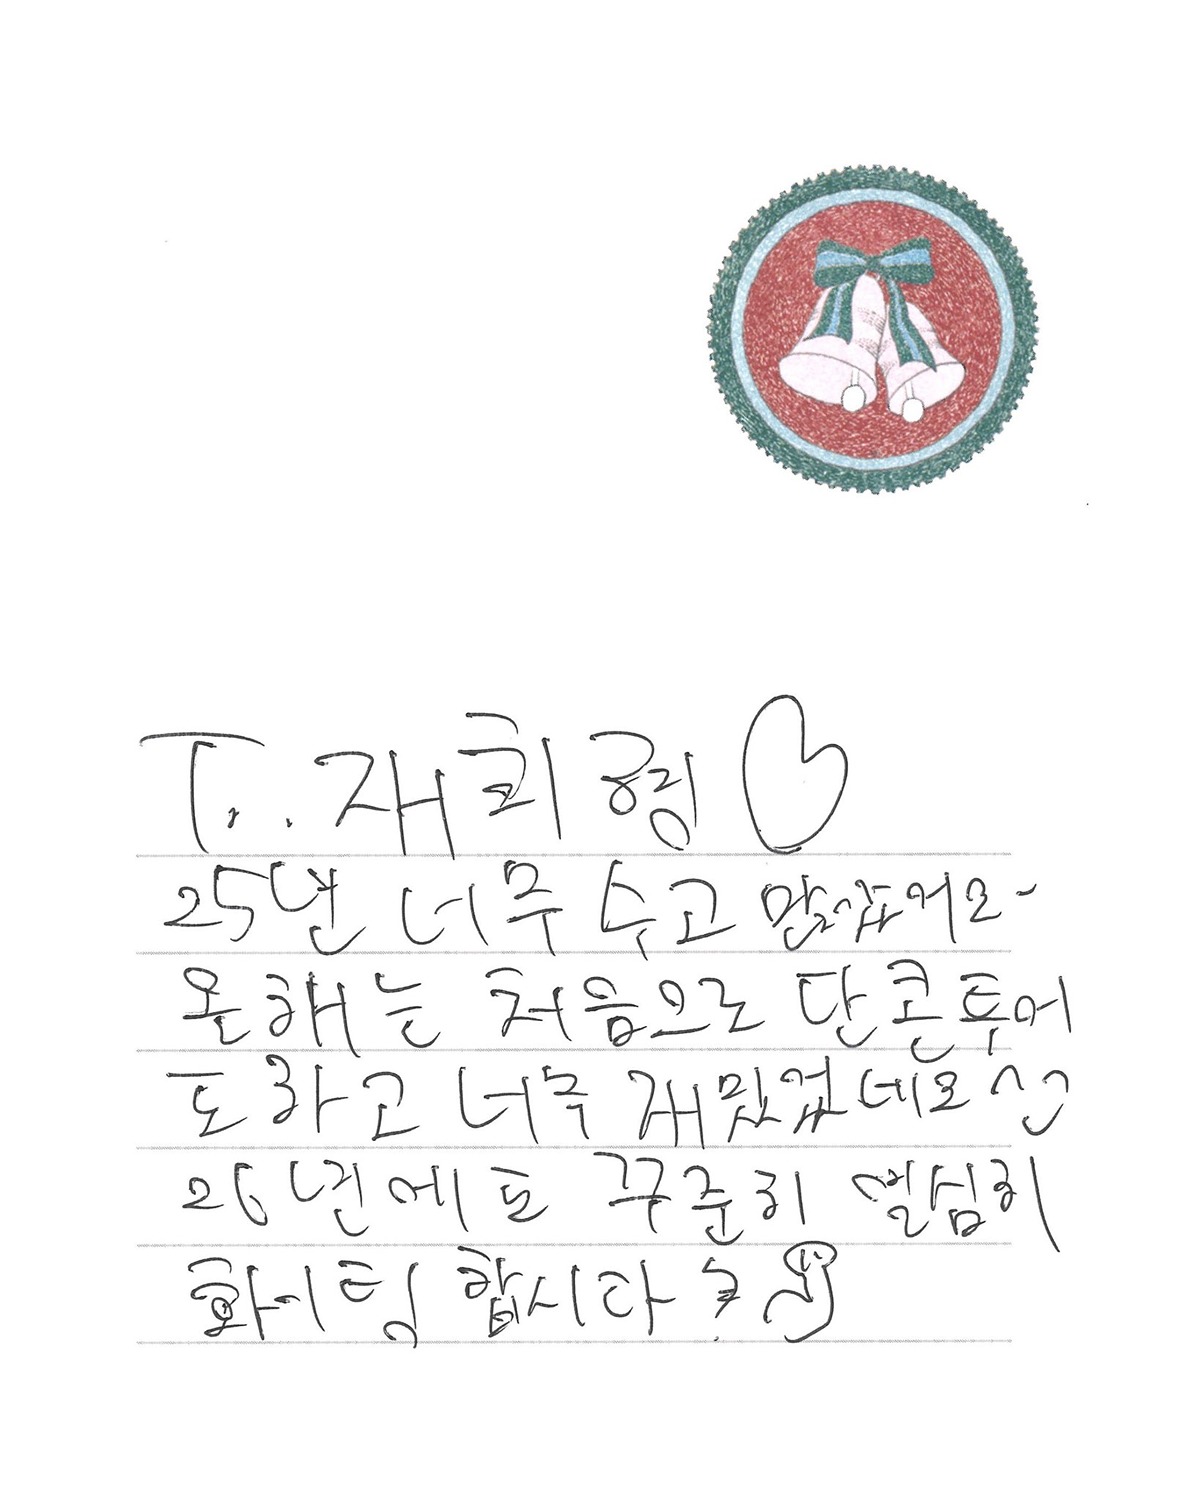 T.. 재희형
25년 너무 수고 많았어요~
올해는 처음으로 단콘투어
도하고 너무 재밌었네요 ^^
26년에도 꾸준히 열심히
화이팅 합시다